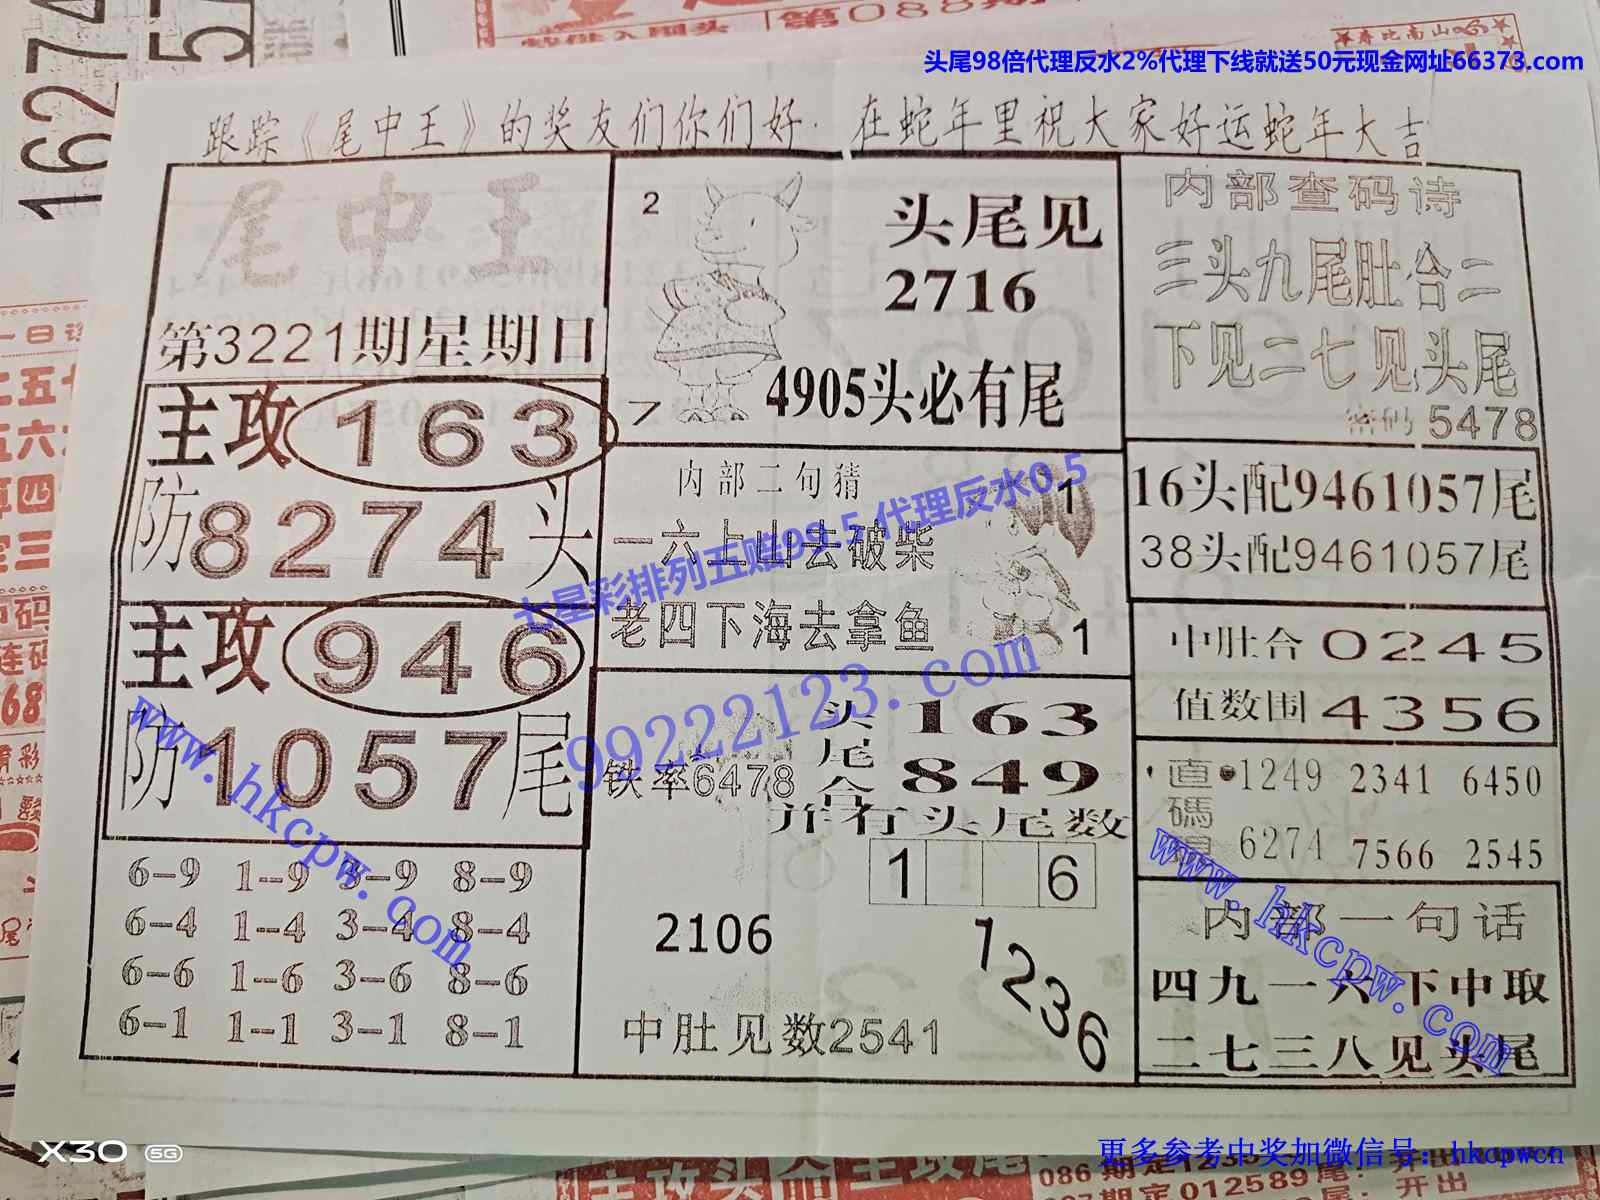 第088期
1627
5
头尾98倍代理反水2%代理下线就送50元现金网址66373.com
跟踪《尾中王》的奖友们你们好. 在蛇年里祝大家好运蛇年大吉
尾中王
第3221期星期日
主攻163
防8274头
主攻946
防1057尾
6--9 1--9 3--9 8--9
6--4 1--4 3--4 8--4
6--6 1--6 3--6 8--6
6--1 1--1 3--1 8--1
2
7
头尾见
2716
4905头必有尾
内部二句猜
一六上山去破柴
老四下海去拿鱼
1
1
铁率6478
头尾合
163
849
并有头尾数
1 6
2106
1236
中肚见数2541
内部查码诗
三头九尾肚合二
下见二七见头尾
密码5478
16头配9461057尾
38头配9461057尾
中肚合0245
值数围4356
直碼
1249 2341 6450
6274 7566 2545
内部一句话
四九一六下中取
二七三八见头尾
七星彩排列五赔99.5代理反水0.5
99222123.com
www.hkcpw.com
www.hkcpw.com
X30 5G
更多参考中奖加微信号: hkcpwcn
主攻尾
086期定123
期定012589尾: 开出